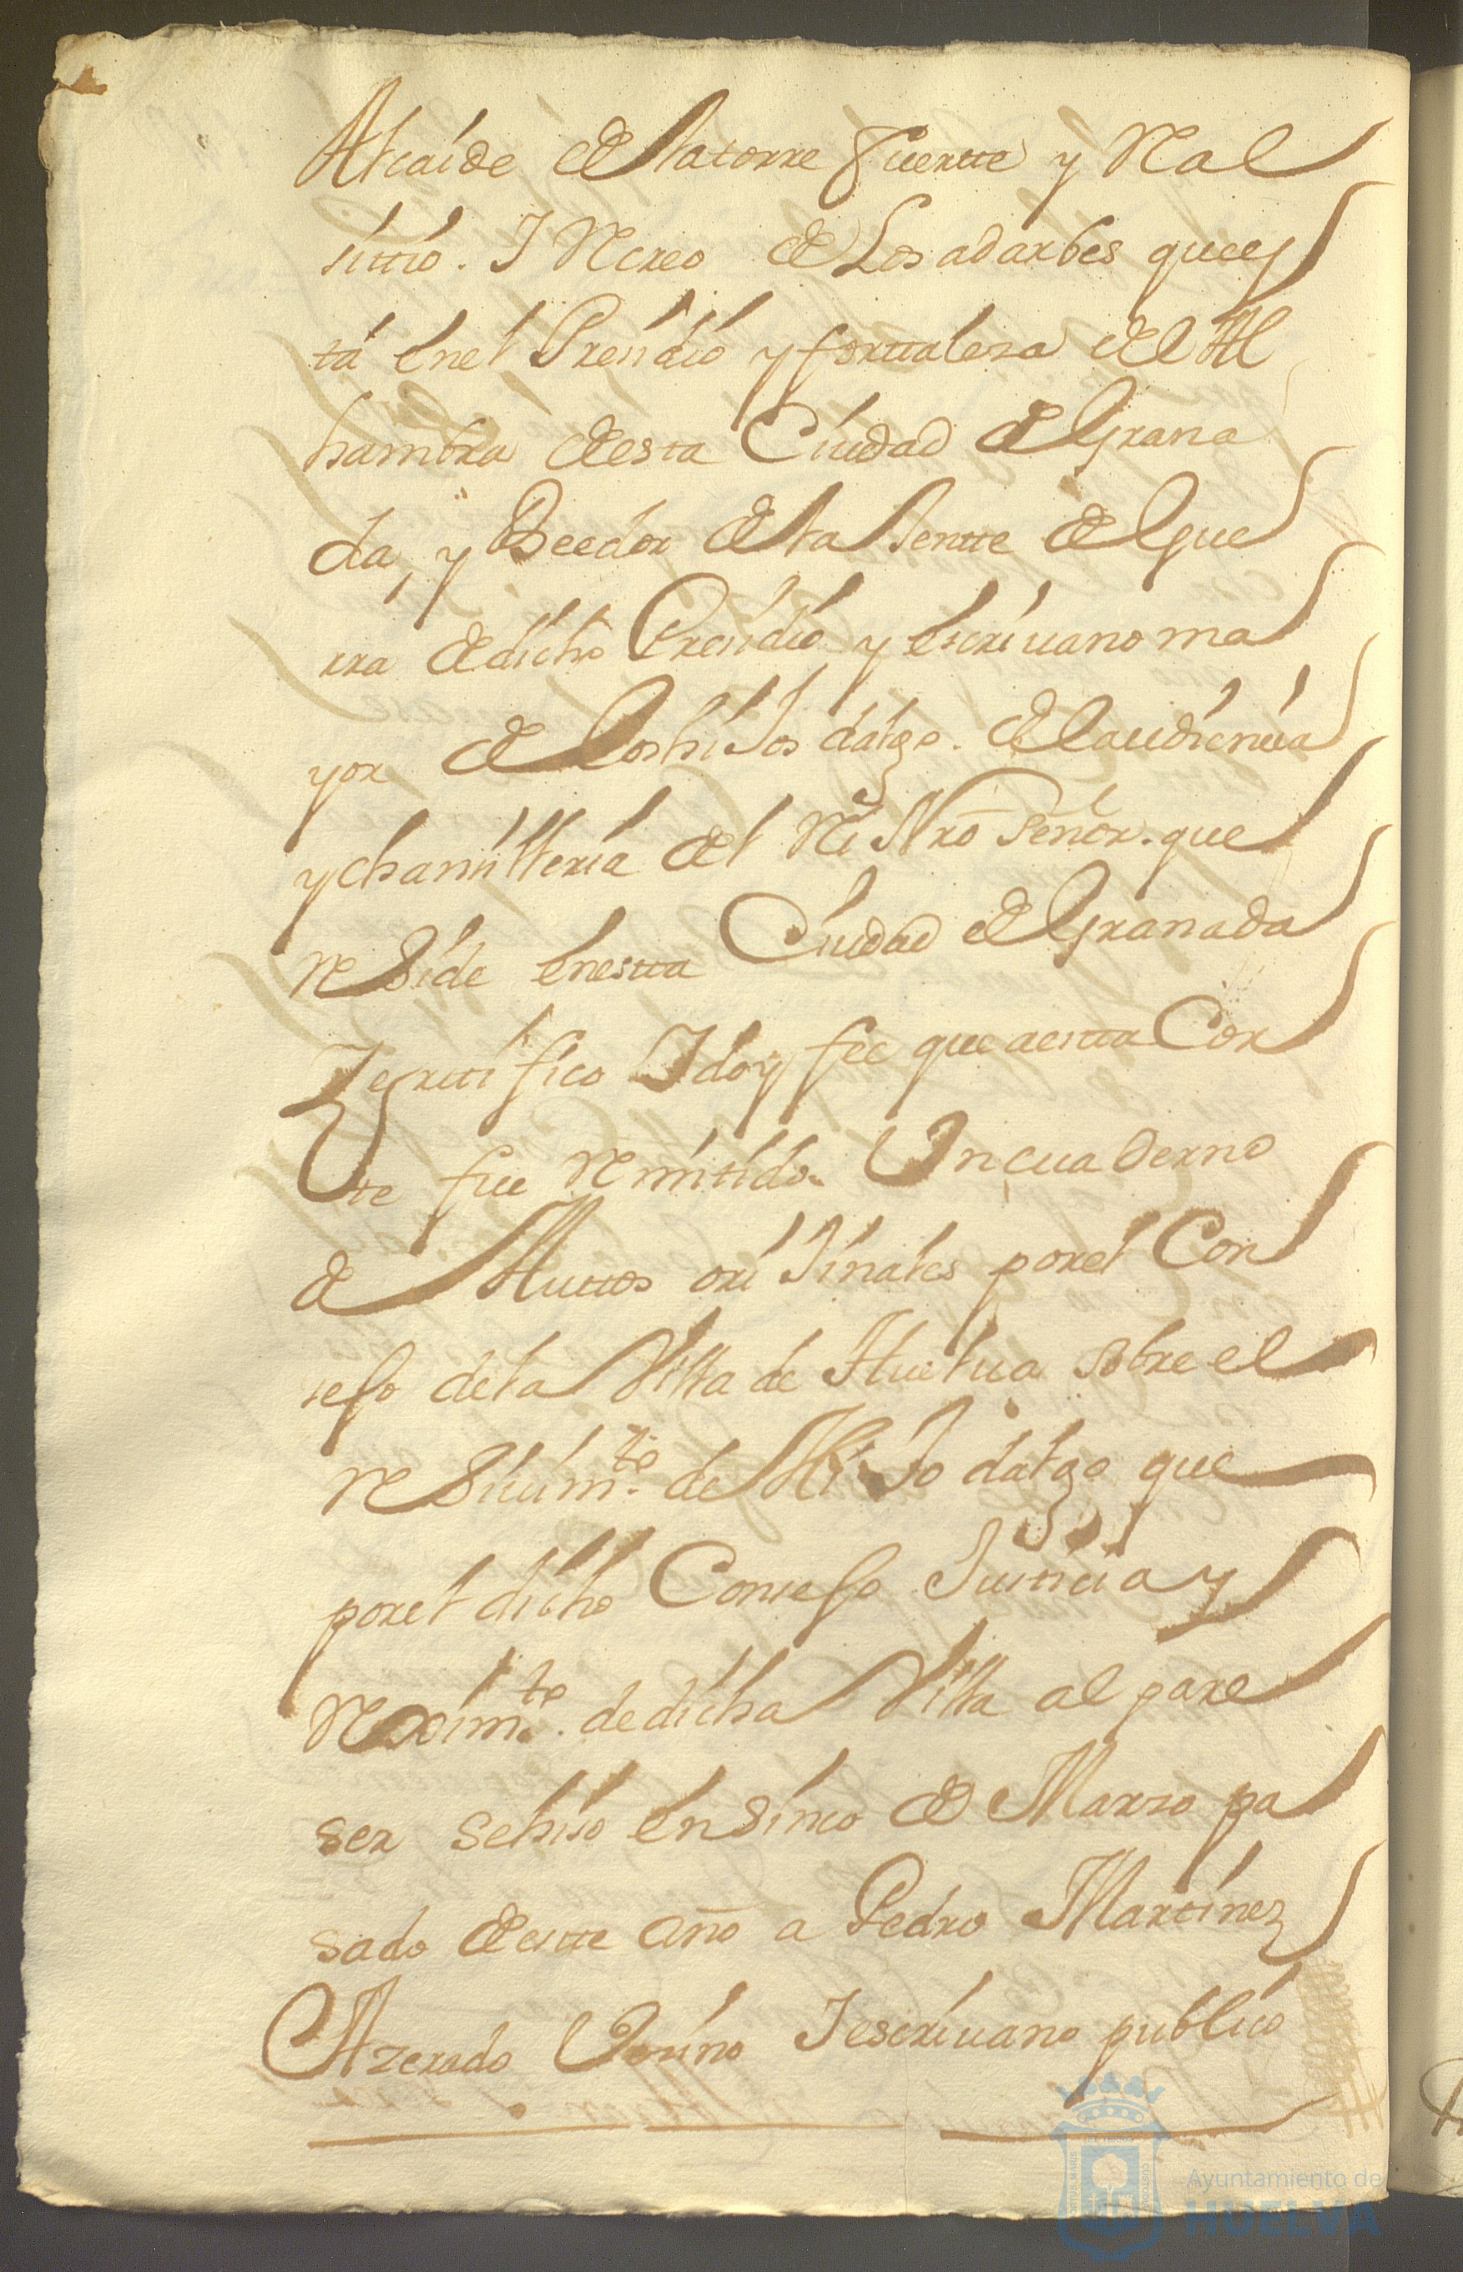 Alcaide de la torre fuertte y Real
sittio. I Recreo de Los adarbes que es
tá en el Presidio y forttalesa del Al
hambra desta Ciudad de Grana
da, y Beedor de la Jentte de Gue
rra de dicho Presidio y escrivano ma
yor de los hiJos dalgo. de la audiencia
y chansilleria del Rei Nro Señor. que
ReSide en estta Ciudad de Granada
Zerttifico I doy fee que a estta Cor
te fue Remitido. Un cuaderno
de Auttos oriJinales por el Con
sejo de la Villa de Huelva sobre el
ReSiuim.to de HiJo dalgo que
por el dicho Consejo Justicia y
Reximto. de dicha Villa al pare
ser se hiso en Sinco de Marzo pa
sado de estte año a Pedro Martinez
Azerado Vecino I escrivano publico
Ayuntamiento de
HUELVA